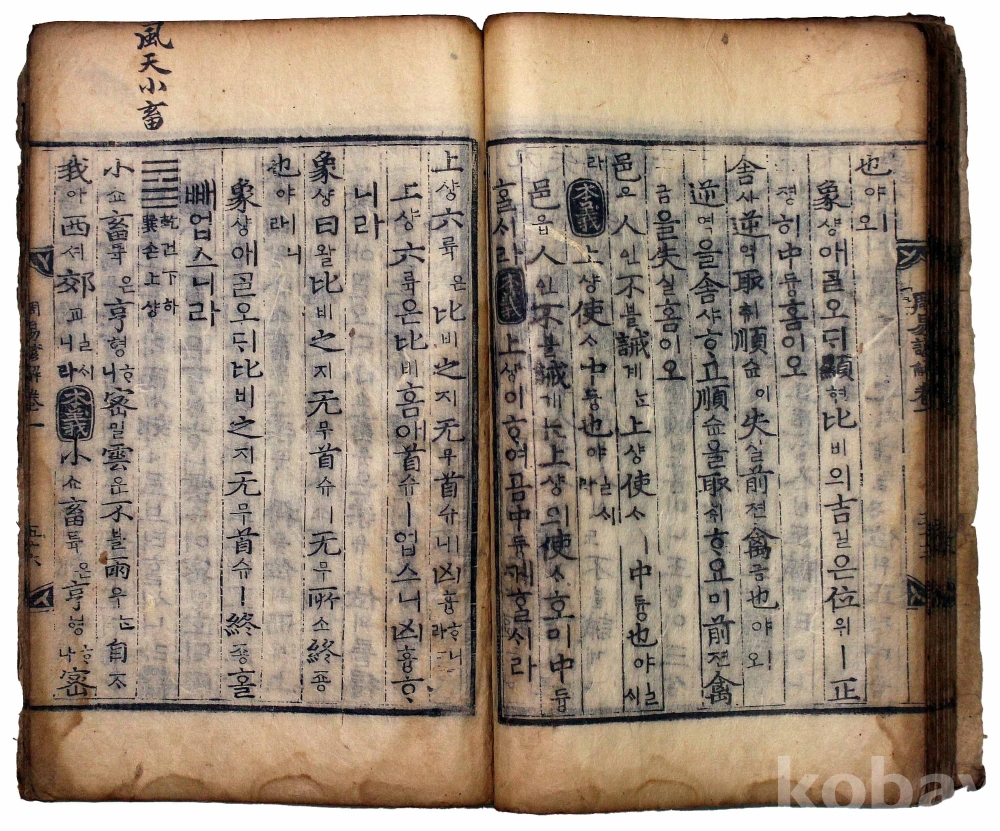 也야ㅣ오
象샹애ᄀᆞᆯ오ᄃᆡ顯현比비의吉길은位위ㅣ正
졍히中듕홈이오
舍사逆역取취順슌이失실前젼禽금也야ㅣ오
逆역을舍샤ᄒᆞ고順슌을取취ᄒᆞ요미前젼禽
금을失실홈이오
邑읍人인不블誡계ᄂᆞᆫ上샹使ᄉᆞㅣ中듕也야ㅣㄹᄉᆡ
라本義上샹使ᄉᆞ中듕也야ㅣㄹᄉᆡ라
邑읍人인不블誡계ᄂᆞᆫ上샹의使ᄉᆞ호미中듕
ᄒᆞᆯᄉᆡ라本義上샹이ᄒᆞ여곰中듕케ᄒᆞᆯᄉᆡ라
上샹六륙은比비之지无무首슈ㅣ니凶흉ᄒᆞ니라
上샹六륙은比비홈애首슈ㅣ업스니凶흉ᄒᆞ
니라
象샹曰왈比비之지无무首슈ㅣ无무所소終죵
也야ㅣ니라
象샹애ᄀᆞᆯ오ᄃᆡ比비之지无무首슈ㅣ終죵ᄒᆞᆯ
빼업스니라
乾건下하
巽손上샹
小쇼畜튝은亨형ᄒᆞ니密밀雲운不블雨우ᄂᆞᆫ自ᄌᆞ
我아西셔郊교ㅣㄹᄉᆡ니라本義小쇼畜튝은亨형ᄒᆞ나密
風天小畜
周易諺解卷一
kobay